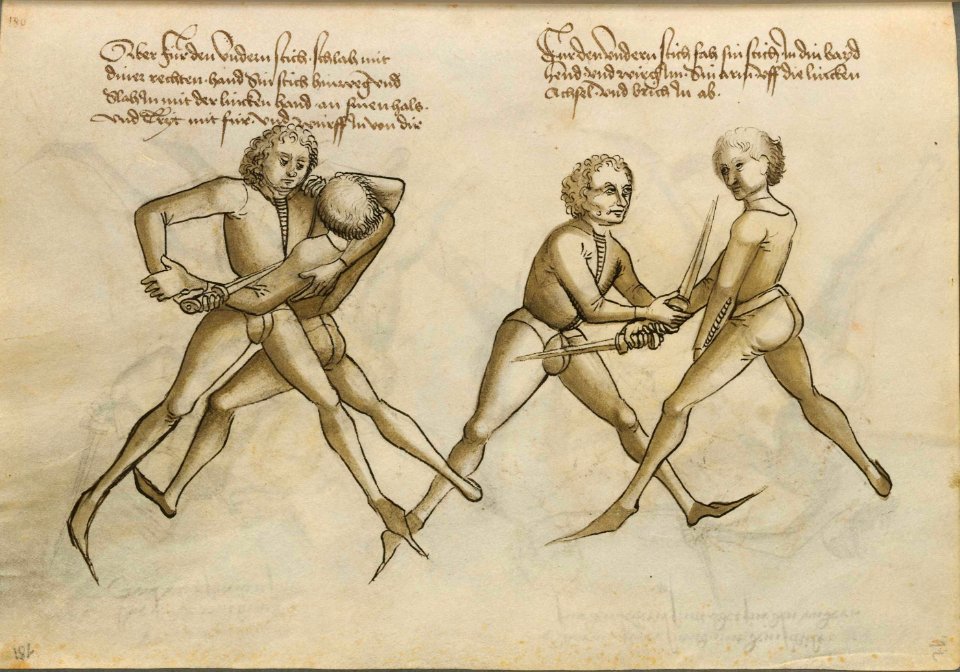 180
Ober für den undern stich schlah mit
diner rechten hand sin stich hinweg und
slah in mit der lincken hand an sinen hals
und tryt mit für und würff in von dir
Für den undern stich fah sin stich in din bayd
hend und wieg im sin arm uff die lincken
achsel und brich in ab.
181